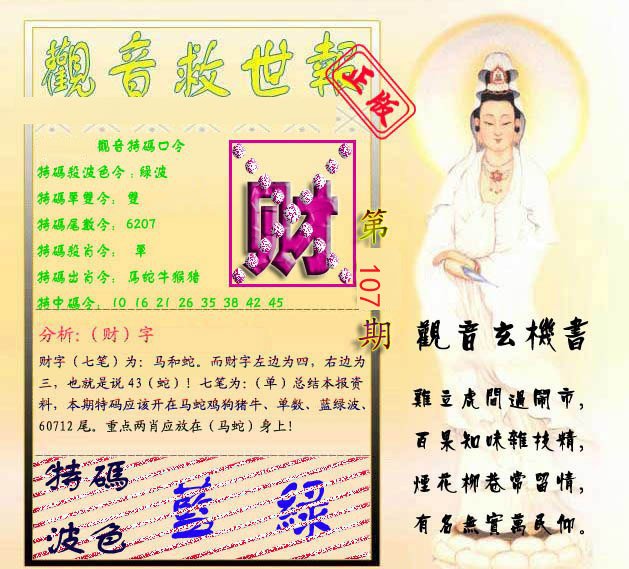 觀音救世報
正版
觀音特碼口令
特碼殺波色令：綠波
特碼單雙令： 雙
特碼尾數令： 6207
特碼殺肖令： 單
特碼出肖令： 馬蛇牛猴猪
特中碼令： 10 16 21 26 35 38 42 45
财
第
107
期
分析:（财）字
财字（七笔）为：马和蛇。而财字左边为四，右边为
三，也就是说 43（蛇）！七笔为：（单）总结本报资
料，本期特码应该开在马蛇鸡狗猪牛、单数、蓝绿波、
60712 尾。重点两肖应放在（马蛇）身上！
特碼
波色
藍 綠
觀音玄機書
雞立虎間過鬧市，
百果知味雜技精，
煙花柳巷常留情，
有名無實萬民仰。